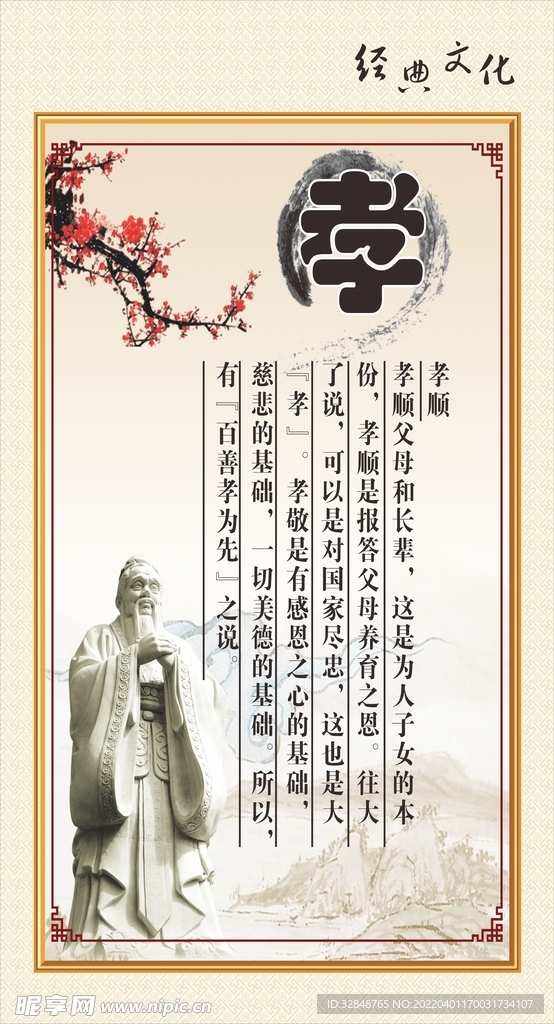 经典文化
孝
孝顺
孝顺父母和长辈，这是为人子女的本
份，孝顺是报答父母养育之恩。往大
了说，可以是对国家尽忠，这也是大
『孝』。孝敬是有感恩之心的基础，
慈悲的基础，一切美德的基础。所以，
有『百善孝为先』之说。
昵享网 www.nipic.cn
ID:32848765 NO:20220401170031734107